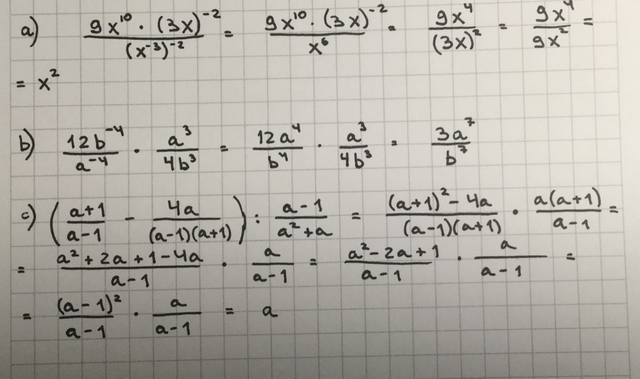 a) \frac{9x^{10} \cdot (3x)^{-2}}{(x^{-3})^{-2}} = \frac{9x^{10} \cdot (3x)^{-2}}{x^{6}} = \frac{9x^{4}}{(3x)^{2}} = \frac{9x^{4}}{9x^{2}} =
= x^{2}
b) \frac{12b^{-4}}{a^{-4}} \cdot \frac{a^{3}}{4b^{3}} = \frac{12a^{4}}{b^{4}} \cdot \frac{a^{3}}{4b^{3}} = \frac{3a^{7}}{b^{7}}
c) \left(\frac{a+1}{a-1} - \frac{4a}{(a-1)(a+1)}\right) : \frac{a-1}{a^{2}+a} = \frac{(a+1)^{2}-4a}{(a-1)(a+1)} \cdot \frac{a(a+1)}{a-1} =
= \frac{a^{2}+2a+1-4a}{a-1} \cdot \frac{a}{a-1} = \frac{a^{2}-2a+1}{a-1} \cdot \frac{a}{a-1} =
= \frac{(a-1)^{2}}{a-1} \cdot \frac{a}{a-1} = a